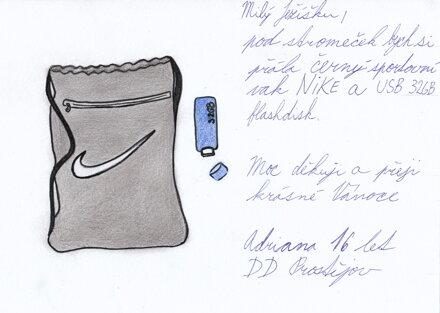 Milý Ježíšku,
pod stromeček bych si
přála černý sportovní
vak NIKE a USB 32GB
flashdisk.
Moc děkuji a přeji
krásné Vánoce
Adriana 16 let
DD Prostějov
32GB